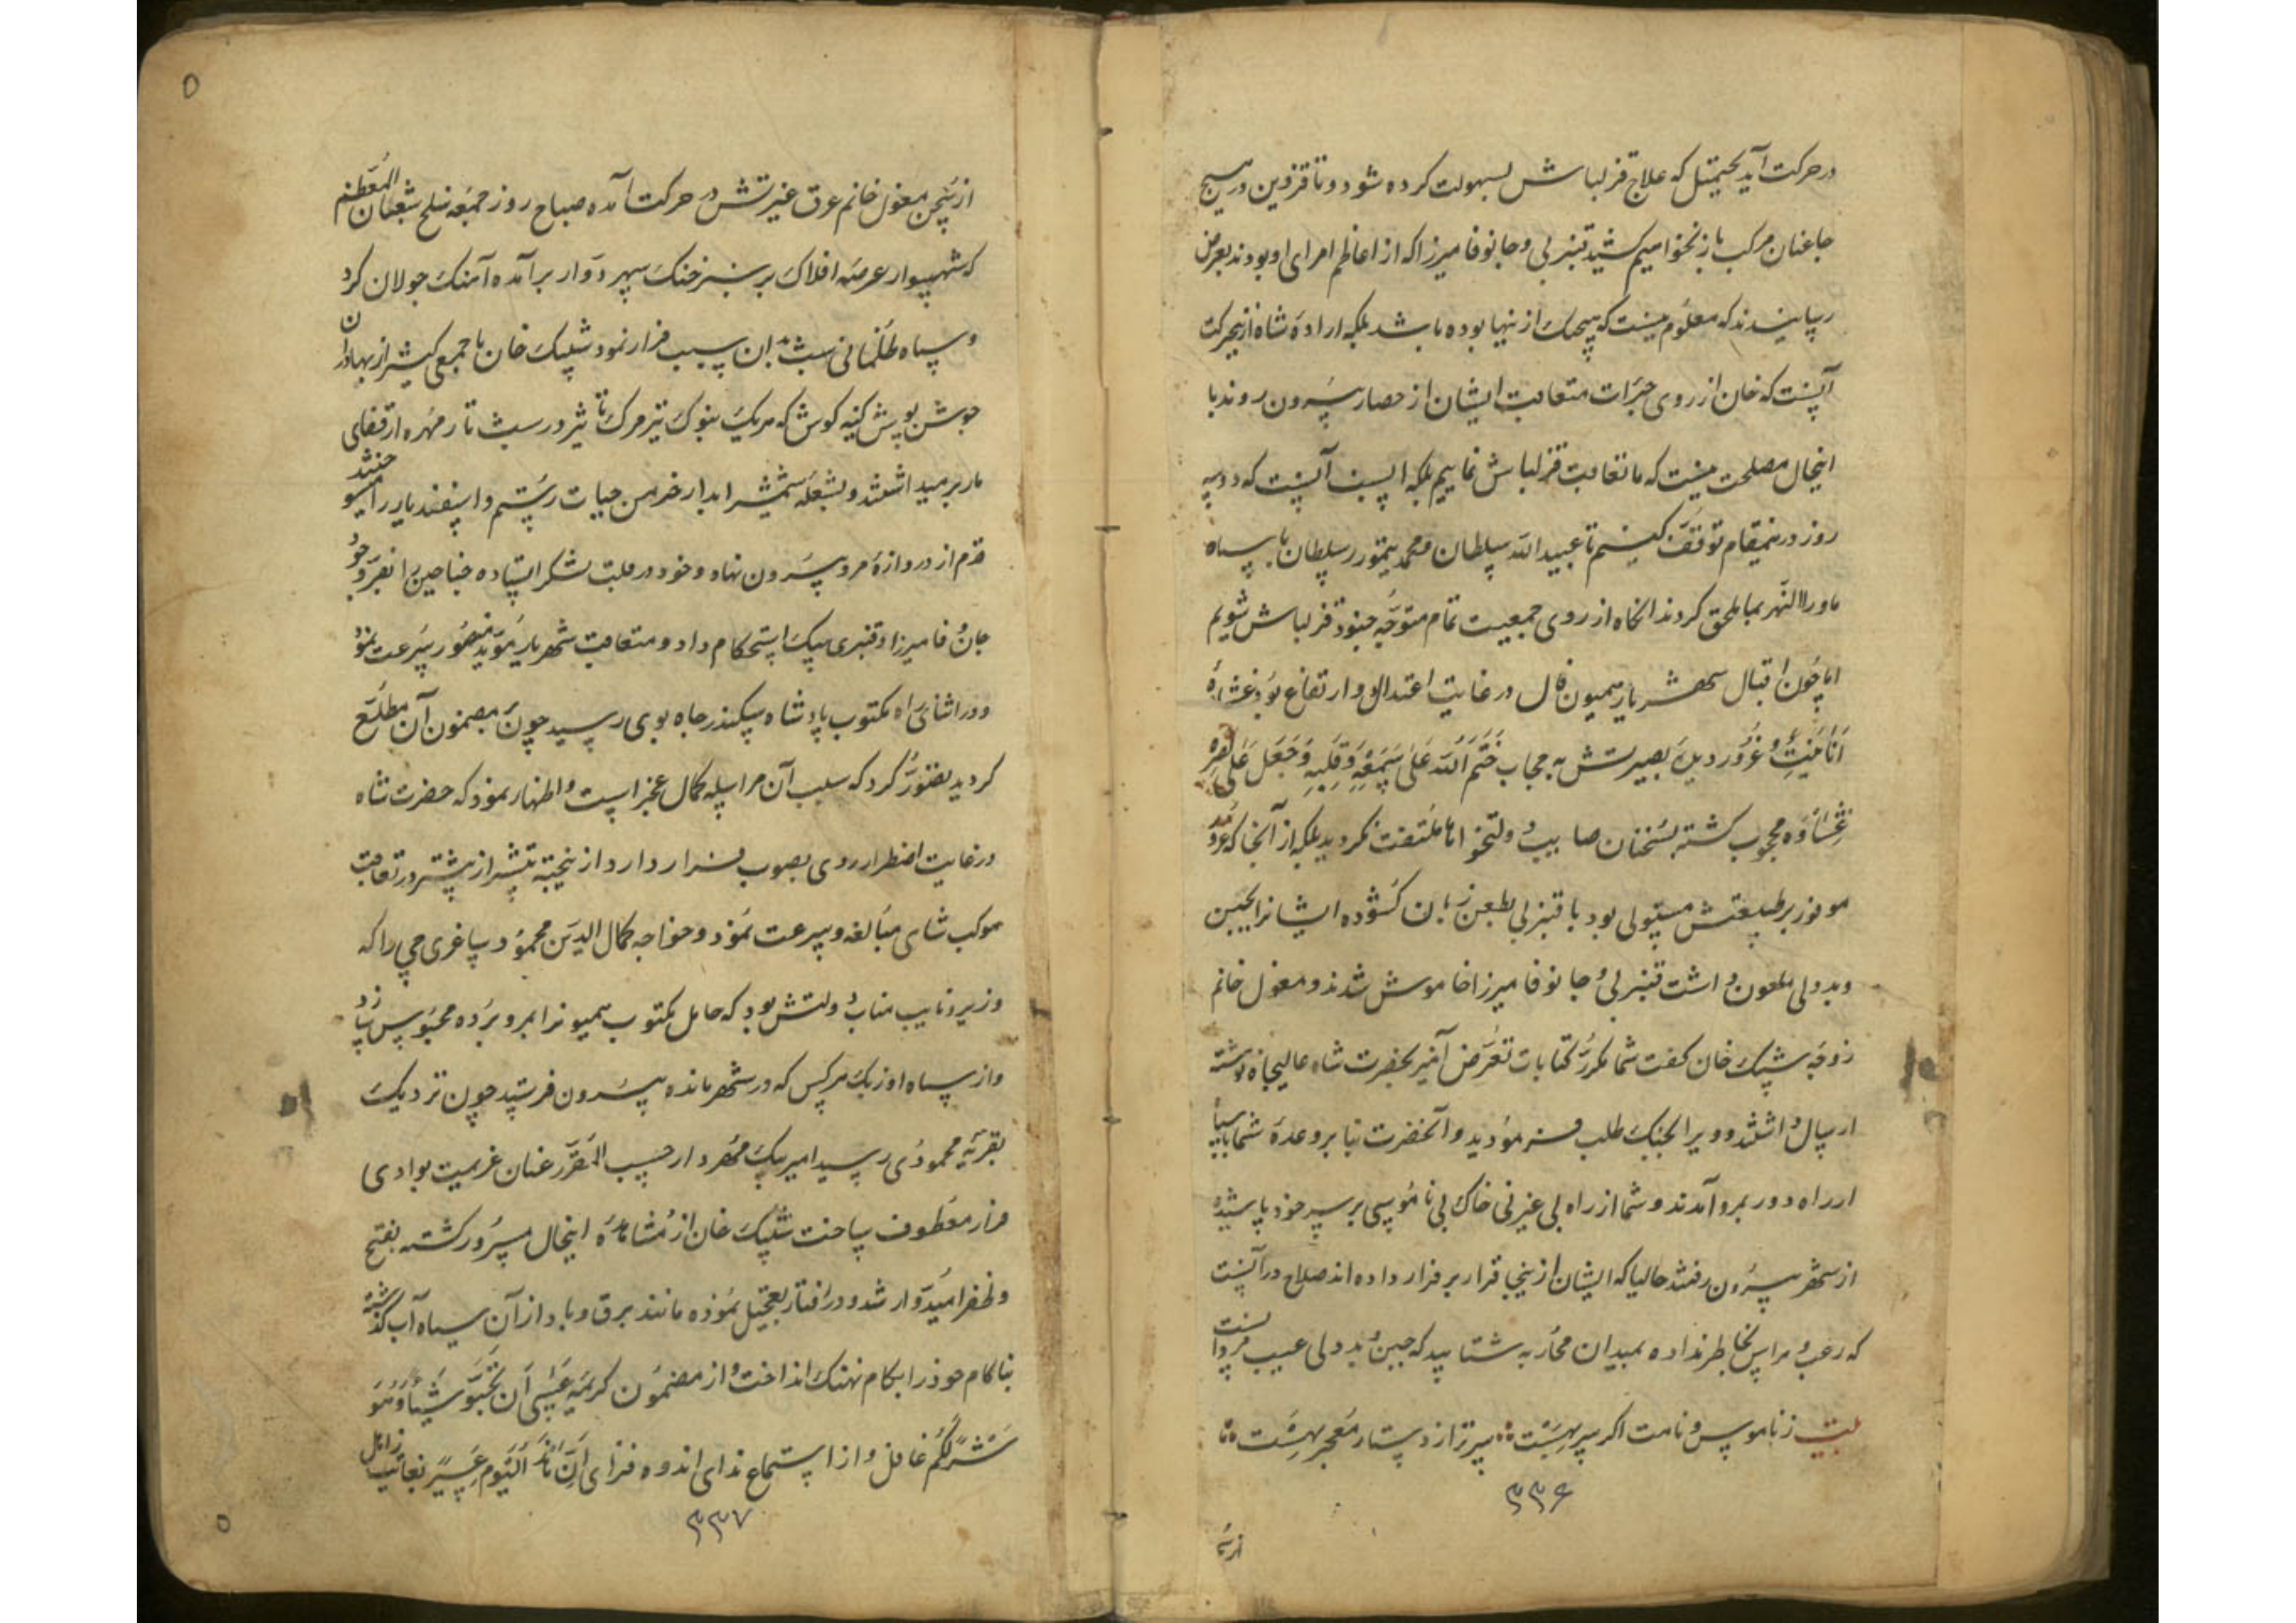 در حرکت آید یحتمل که علاج قزلباش بسهولت کرده شود و تا قزوین در هیچ
جا عنان مرکب باز نخواهیم کشید قنبر بی و جانوفا میرزا که از اعاظم امرای او بودند بعرض
رسانیدند که معلوم نیست که هیچیک ازینها بوده باشد بلکه اراده شاه ازین حرکت
آنست که خان از روی جرات متعاقب ایشان از حصار بیرون روند با
اینحال مصلحت نیست که ما تعاقب قزلباش نماییم بلکه انسب آنست که دو سه
روز درینمقام توقف کنیم تا عبیدالله سلطان و محمد تیمور سلطان با سپاه
ماوراالنهر بما ملحق کردند انکاه از روی جمعیت تمام متوجه جنود قزلباش شویم
اما چون اقبال شهریار همیون فال در غایت اعتدال و ارتفاع بود غشاوهٔ
انانیت و غرور دیدهٔ بصیرتش به حجاب خَتَمَ اللّه عَلی سَمعِهِ وَ قَلبِهِ وَ جَعَلَ عَلی بَصَرِهِ
غِشاوَه محجوب کشته بسخنان صایب دولتخواهان ملتفت نکردید بلکه از آنجا که غرور
موفور بر طبیعتش مستولی بود با قنبر بی بطعن زبان کشوده ایشانرا بجبن
و بددلی مطعون داشت قنبر بی و جانوفا میرزا خاموش شدند و مغول خانم
زوجهٔ شیبک خان کفت شما مکرر کتابات تعرض آمیز بحضرت شاه عالیجاه نوشته
ارسال داشتند و ویرا بجنک طلب فرمودید و آنحضرت بنا بر وعدهٔ شما با سپاه
از راه دور بمرو آمدند و شما از راه بی غیرتی خاک بی ناموسی بر سر خود پاشیده
از شهر بیرون رفتند حالیا که ایشان ازینجا قرار بر فرار داده اند صلاح در آنست
که رعب و هراس بخاطر نداده بمیدان محاربه شتابید که جبن و بددلی عیب مردانست
بیت ز ناموس و نامت اکر سر بهست سر تو از دستار معجر بهست
از سخن
۳۳۶
از سخن مغول خانم عرق غیرتش در حرکت آمده صباح روز جمعه سلخ شعبان المعظم
که شهسوار عرصه افلاک بر سبز خنک سپهر دوار برآمده آهنک جولان کرد
و سپاه ظلمانی شب از آن سبب فرار نمود شیبک خان با جمعی کثیر از بهادران
جوشن پوش کینه کوش که هریک بنوک تیر مرک تاثیر در شب تار مهره از قفای
مار برمیداشتند و بشعلهٔ شمشیر ابدار خرمن حیات رستم و اسفندیار را میسوختند
قدم از دروازهٔ مرو بیرون نهاد و خود در قلب لشکر ایستاده جناحین را بفر وجود
جان وفا میرزا و قنبری بیک استحکام داد و متعاقب شهریار موید منصور سرعت نمود
و در اثنای راه مکتوب پادشاه سکندر جاه بوی رسید چون بمضمون آن مطلع
کردید تصور کرد که سبب آن مراسله کمال عجز است و اظهار نمود که حضرت شاه
در غایت اضطرار روی بصوب فرار دارد ازینجهته بیشتر از پیشتر در تعاقب
موکب شاهی مبالغه و سرعت نمود و خواجه کمال الدین محمود ساغرچی را که
وزیر و نایب مناب دولتش بود که حامل مکتوب همیونرا بمرو برده محبوس سازد
و از سپاه اوزبک هرکس که در شهر مانده بیرون فرستید چون نزدیک
بقریهٔ محمودی رسید امیر بیک مهردار حسب المقرر عنان عزیمت بوادی
فرار معطوف ساخت شیبک خان از مشاهدهٔ اینحال مسرور کشته بفتح
و ظفر امیدوار شد و در رفتار تعجیل نموده مانند برق و باد از آن سیاه آب کذشته
بناکام خود را بکام نهنک انداخت و از مضمون کریمهٔ عَسی اَن تُحِبّوُ شَیئاً وَ هُوَ
شَرٌ لَکُم غافل و از استماع ندای اندوه فزای اَنَّ هذا الیَوم عَسیرٌ بغایت ذاهل
۳۳۷